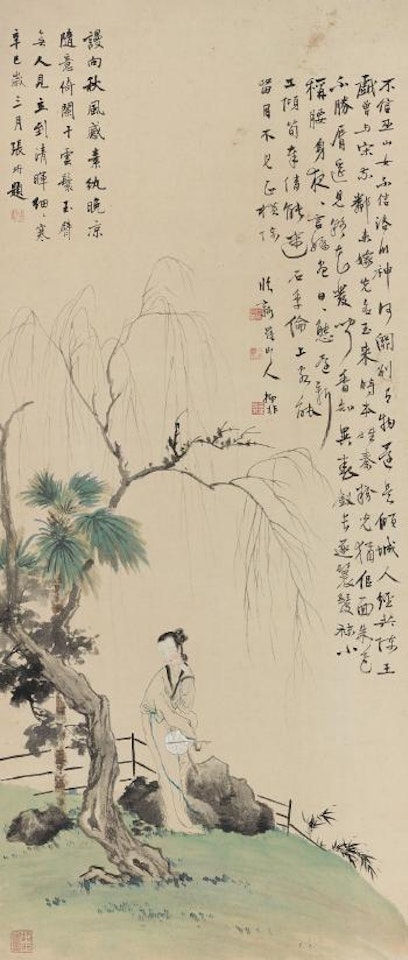 不信巫山女不信洛川神何關別有物還是傾城人經共陳王
戲曾与宋家鄰未嫁先名玉来時本姓秦粉光猶似面朱色
不勝唇遥見疑花發聞香知異春釵長逐鬟髮袜小
稱腰身夜〻言嬌盡日〻態還新
工傾荀奉倩能迷石季倫上客徒
留目不見正横陳
羅山人
謾向秋風感素紈晚凉
隨意倚闌干雲鬟玉臂
無人見立到清暉細〻寒
辛巳歲三月張珩題